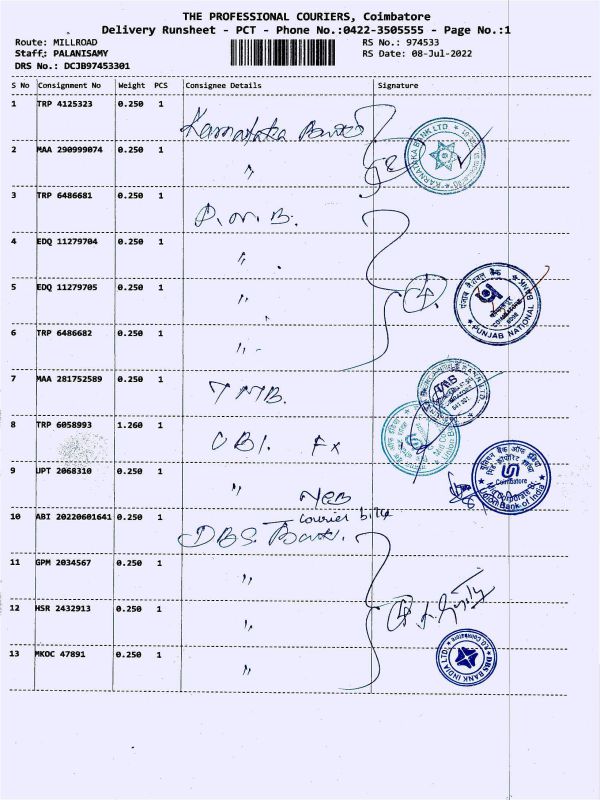 THE PROFESSIONAL COURIERS, Coimbatore
Delivery Runsheet - PCT - Phone No.:0422-3505555 - Page No.:1
Route: MILLROAD RS No.: 974533
Staff: PALANISAMY RS Date: 08-Jul-2022
DRS No.: DCJB97453301
S No Consignment No Weight PCS Consignee Details Signature
1 TRP 4125323 0.250 1 Karnataka Bank
KARNATAKA BANK LTD.
2 MAA 290999074 0.250 1 "
3 TRP 6486681 0.250 1 P.N.B.
4 EDQ 11279704 0.250 1 "
5 EDQ 11279705 0.250 1 " 4
पंजाब नैशनल बैंक
PUNJAB NATIONAL BANK
6 TRP 6486682 0.250 1 "
7 MAA 281752589 0.250 1 TMB.
TMB
8 TRP 6058993 1.260 1 UBI. Fx
9 UPT 2068310 0.250 1 "
यूनियन बैंक ऑफ इंडिया
Coimbatore
Union Bank of India
courier
10 ABI 20220601641 0.250 1 DBS Bank.
11 GPM 2034567 0.250 1 "
12 HSR 2432913 0.250 1 " 4
13 MKOC 47891 0.250 1 "
DBS BANK INDIA LTD